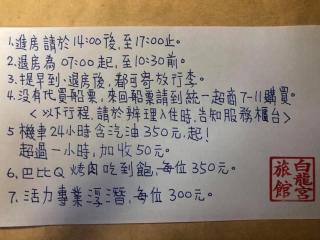 1.進房請於14:00後,至17:00止。
2.退房為07:00起,至10:30前。
3.提早到、退房後,都可寄放行李。
4.沒有代買船票,來回船票請到統一超商7-11購買。
<以下行程,請於辦理入住時,告知服務櫃台>
5 機車24小時含汽油350元,起!
超過一小時,加收50元。
6.巴比Q烤肉吃到飽,每位350元。
7.活力專業浮潛,每位300元。
白龍宮
旅館